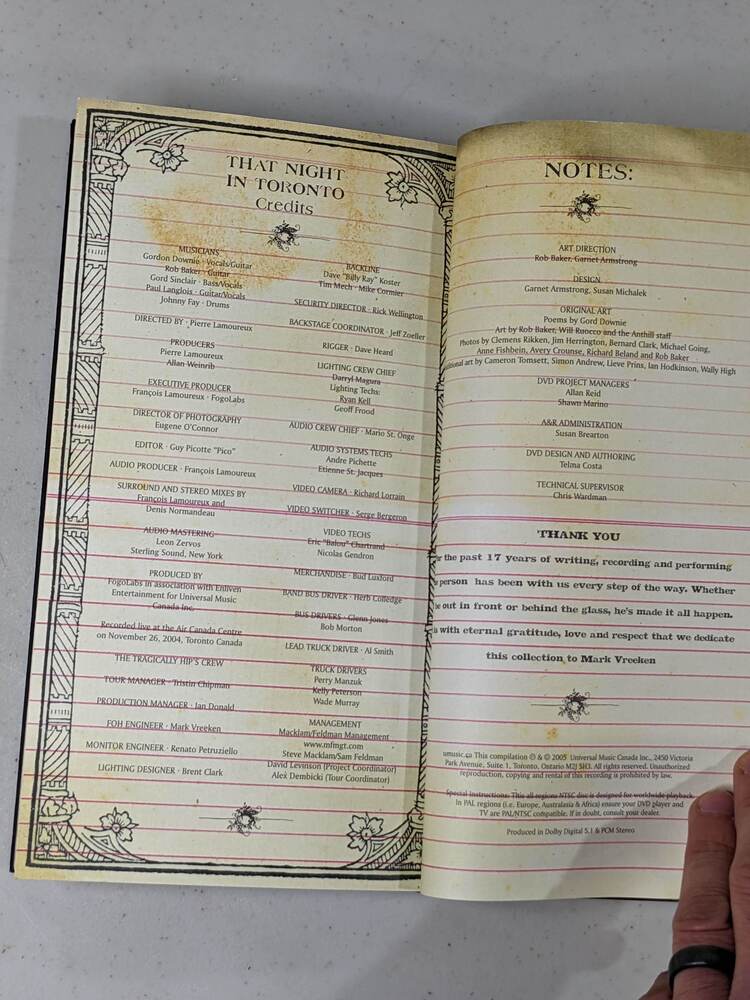 THAT NIGHT
IN TORONTO
Credits
MUSICIANS
Gordon Downie · Vocals/Guitar
Rob Baker · Guitar
Gord Sinclair · Bass/Vocals
Paul Langlois · Guitar/Vocals
Johnny Fay · Drums
DIRECTED BY · Pierre Lamoureux
PRODUCERS
Pierre Lamoureux
Allan Weinrib
EXECUTIVE PRODUCER
François Lamoureux · FogoLabs
DIRECTOR OF PHOTOGRAPHY
Eugene O'Connor
EDITOR · Guy Picotte "Pico"
AUDIO PRODUCER · François Lamoureux
SURROUND AND STEREO MIXES BY
François Lamoureux and
Denis Normandeau
AUDIO MASTERING
Leon Zervos
Sterling Sound, New York
PRODUCED BY
FogoLabs in association with Enliven
Entertainment for Universal Music
Canada Inc.
Recorded live at the Air Canada Centre
on November 26, 2004, Toronto Canada
THE TRAGICALLY HIP'S CREW
TOUR MANAGER · Tristin Chipman
PRODUCTION MANAGER · Ian Donald
FOH ENGINEER · Mark Vreeken
MONITOR ENGINEER · Renato Petruziello
LIGHTING DESIGNER · Brent Clark
BACKLINE
Dave "Billy Ray" Koster
Tim Mech · Mike Cormier
SECURITY DIRECTOR · Rick Wellington
BACKSTAGE COORDINATOR · Jeff Zoeller
RIGGER · Dave Heard
LIGHTING CREW CHIEF
Darryl Magura
Lighting Techs:
Ryan Kell
Geoff Frood
AUDIO CREW CHIEF · Mario St. Onge
AUDIO SYSTEMS TECHS
Andre Pichette
Etienne St. Jacques
VIDEO CAMERA · Richard Lorrain
VIDEO SWITCHER · Serge Bergeron
VIDEO TECHS
Eric "Balou" Chartrand
Nicolas Gendron
MERCHANDISE · Bud Luxford
BAND BUS DRIVER · Herb Colledge
BUS DRIVERS · Glenn Jones
Bob Morton
LEAD TRUCK DRIVER · Al Smith
TRUCK DRIVERS
Perry Manzuk
Kelly Peterson
Wade Murray
MANAGEMENT
Macklam/Feldman Management
www.mfmgt.com
Steve Macklam/Sam Feldman
David Levinson (Project Coordinator)
Alex Dembicki (Tour Coordinator)
NOTES:
ART DIRECTION
Rob Baker, Garnet Armstrong
DESIGN
Garnet Armstrong, Susan Michalek
ORIGINAL ART
Poems by Gord Downie
Art by Rob Baker, Will Ruocco and the Anthill staff
Photos by Clemens Rikken, Jim Herrington, Bernard Clark, Michael Going,
Anne Fishbein, Avery Crounse, Richard Beland and Rob Baker
art by Cameron Tomsett, Simon Andrew, Lieve Prins, Ian Hodkinson, Wally High
DVD PROJECT MANAGERS
Allan Reid
Shawn Marino
A&R ADMINISTRATION
Susan Brearton
DVD DESIGN AND AUTHORING
Telma Costa
TECHNICAL SUPERVISOR
Chris Wardman
THANK YOU
the past 17 years of writing, recording and performing
person has been with us every step of the way. Whether
be out in front or behind the glass, he's made it all happen.
is with eternal gratitude, love and respect that we dedicate
this collection to Mark Vreeken
umusic.ca This compilation ℗ & © 2005 Universal Music Canada Inc., 2450 Victoria
Park Avenue, Suite 1, Toronto, Ontario M2J 5H3. All rights reserved. Unauthorized
reproduction, copying and rental of this recording is prohibited by law.
Special Instructions: This all-regions NTSC disc is designed for worldwide playback.
In PAL regions (i.e. Europe, Australasia & Africa) ensure your DVD player and
TV are PAL/NTSC compatible. If in doubt, consult your dealer.
Produced in Dolby Digital 5.1 & PCM Stereo